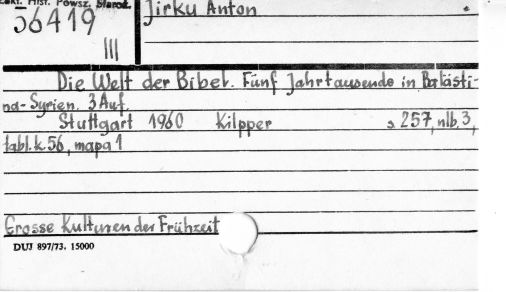 Zakł. Hist. Powsz. Staroż.
56419
III
Jirku Anton
Die Welt der Bibel. Fünf Jahrtausende in Palästi-
na-Syrien. 3 Auf.
Stuttgart 1960 Kilpper s. 257, nlb. 3,
tabl. k. 56, mapa 1
Grosse Kulturen der Frühzeit
DUJ 897/73. 15000